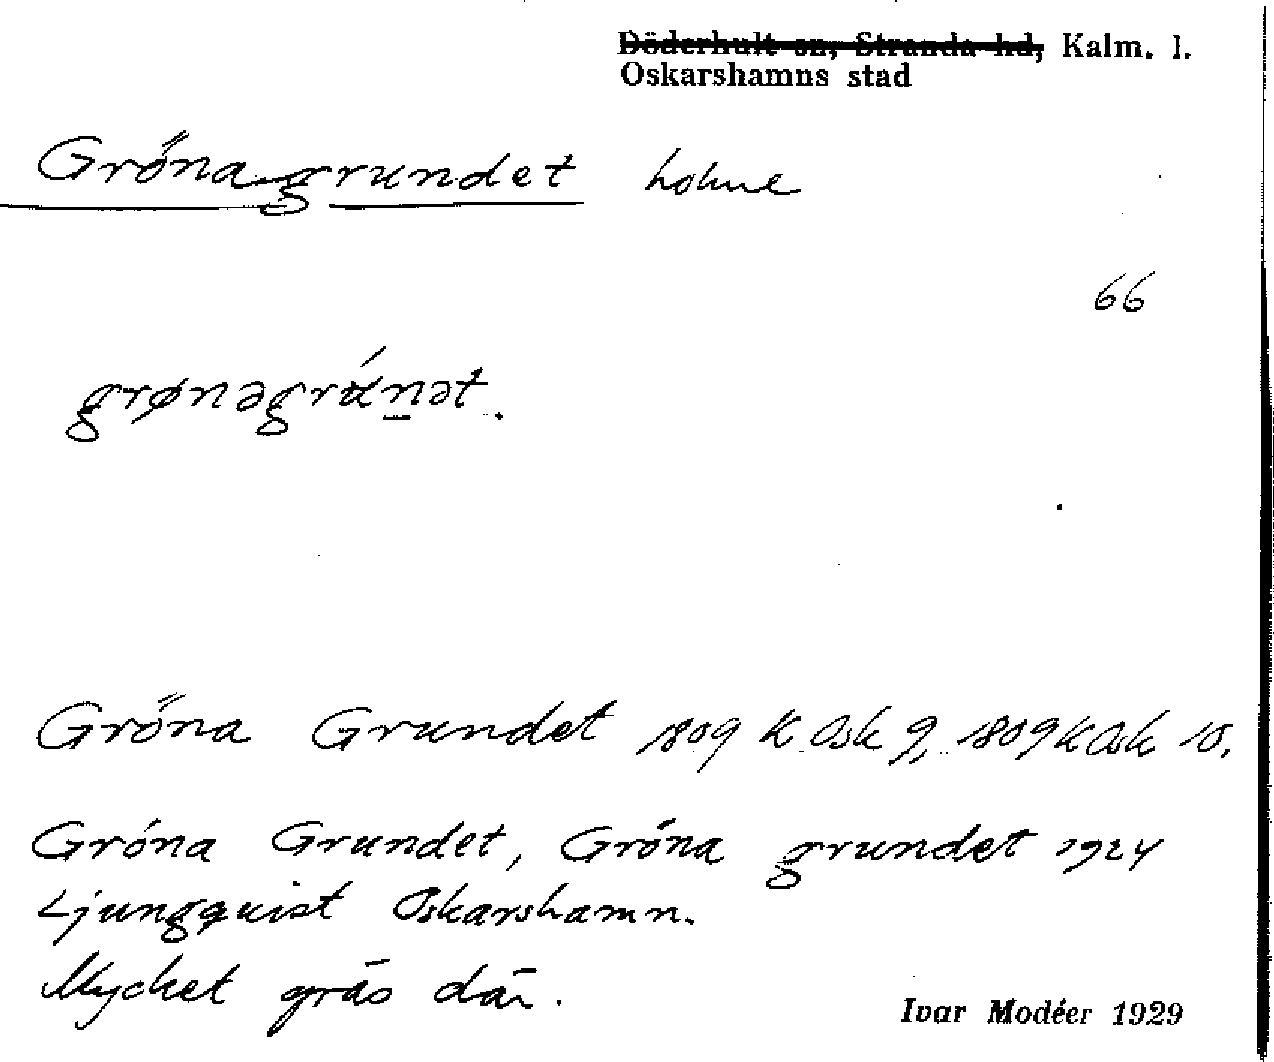 Döderhult sn, Stranda hd, Kalm. l.
Oskarshamns stad
Gröna grundet holme
66
grønəgrúnət.
Gröna Grundet 1809 K Osk 9, 1809 K Osk 10.
Gröna Grundet, Gröna grundet 1924
Ljungquist Oskarshamn.
Mycket gräs där.
Ivar Modéer 1929